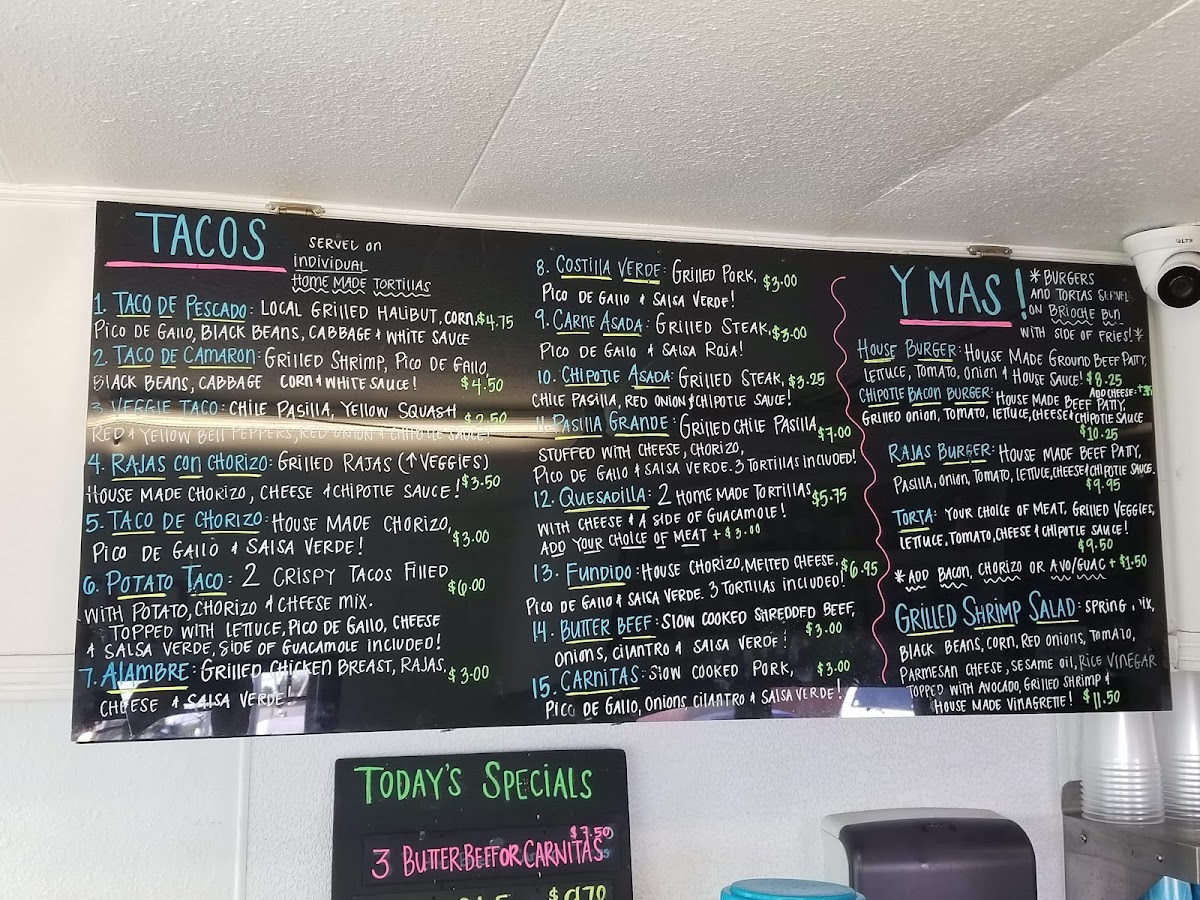 TACOS
SERVED ON
INDIVIDUAL
HOME MADE TORTILLAS
1. TACO DE PESCADO: LOCAL GRILLED HALIBUT, CORN, $4.75
PICO DE GALLO, BLACK BEANS, CABBAGE & WHITE SAUCE
2. TACO DE CAMARON: GRILLED SHRIMP, PICO DE GALLO,
BLACK BEANS, CABBAGE CORN & WHITE SAUCE! $4.50
3. VEGGIE TACO: CHILE PASILLA, YELLOW SQUASH $2.50
RED & YELLOW BELL PEPPERS, RED ONION & CHIPOTLE SAUCE!
4. RAJAS CON CHORIZO: GRILLED RAJAS (↑ VEGGIES)
HOUSE MADE CHORIZO, CHEESE & CHIPOTLE SAUCE! $3.50
5. TACO DE CHORIZO: HOUSE MADE CHORIZO,
PICO DE GALLO & SALSA VERDE! $3.00
6. POTATO TACO: 2 CRISPY TACOS FILLED $6.00
WITH POTATO, CHORIZO & CHEESE MIX.
TOPPED WITH LETTUCE, PICO DE GALLO, CHEESE
& SALSA VERDE, SIDE OF GUACAMOLE INCLUDED!
7. ALAMBRE: GRILLED CHICKEN BREAST, RAJAS, $3.00
CHEESE & SALSA VERDE!
8. COSTILLA VERDE: GRILLED PORK, $3.00
PICO DE GALLO & SALSA VERDE!
9. CARNE ASADA: GRILLED STEAK, $3.00
PICO DE GALLO & SALSA ROJA!
10. CHIPOTLE ASADA: GRILLED STEAK, $3.25
CHILE PASILLA, RED ONION & CHIPOTLE SAUCE!
11. PASILLA GRANDE: GRILLED CHILE PASILLA $7.00
STUFFED WITH CHEESE, CHORIZO,
PICO DE GALLO & SALSA VERDE. 3 TORTILLAS INCLUDED!
12. QUESADILLA: 2 HOME MADE TORTILLAS $5.75
WITH CHEESE & A SIDE OF GUACAMOLE!
ADD YOUR CHOICE OF MEAT + $3.00
13. FUNDIDO: HOUSE CHORIZO, MELTED CHEESE, $6.95
PICO DE GALLO & SALSA VERDE. 3 TORTILLAS INCLUDED!
14. BUTTER BEEF: SLOW COOKED SHREDDED BEEF,
ONIONS, CILANTRO & SALSA VERDE! $3.00
15. CARNITAS: SLOW COOKED PORK, $3.00
PICO DE GALLO, ONIONS CILANTRO & SALSA VERDE!
Y MAS!
*BURGERS
AND TORTAS SERVED
ON BRIOCHE BUN
WITH SIDE OF FRIES!*
HOUSE BURGER: HOUSE MADE GROUND BEEF PATTY,
LETTUCE, TOMATO, ONION & HOUSE SAUCE! $8.25
ADD CHEESE:
CHIPOTLE BACON BURGER: HOUSE MADE BEEF PATTY,
GRILLED ONION, TOMATO, LETTUCE, CHEESE & CHIPOTLE SAUCE
$10.25
RAJAS BURGER: HOUSE MADE BEEF PATTY,
PASILLA, ONION, TOMATO, LETTUCE, CHEESE & CHIPOTLE SAUCE.
$9.95
TORTA: YOUR CHOICE OF MEAT, GRILLED VEGGIES,
LETTUCE, TOMATO, CHEESE & CHIPOTLE SAUCE!
$9.50
*ADD BACON, CHORIZO OR AVO/GUAC + $1.50
GRILLED SHRIMP SALAD: SPRING
BLACK BEANS, CORN, RED ONIONS, TOMATO,
PARMESAN CHEESE, SESAME OIL, RICE VINEGAR
TOPPED WITH AVOCADO, GRILLED SHRIMP &
HOUSE MADE VINAGRETTE! $11.50
TODAY'S SPECIALS
$7.50
3 BUTTER BEEF OR CARNITAS